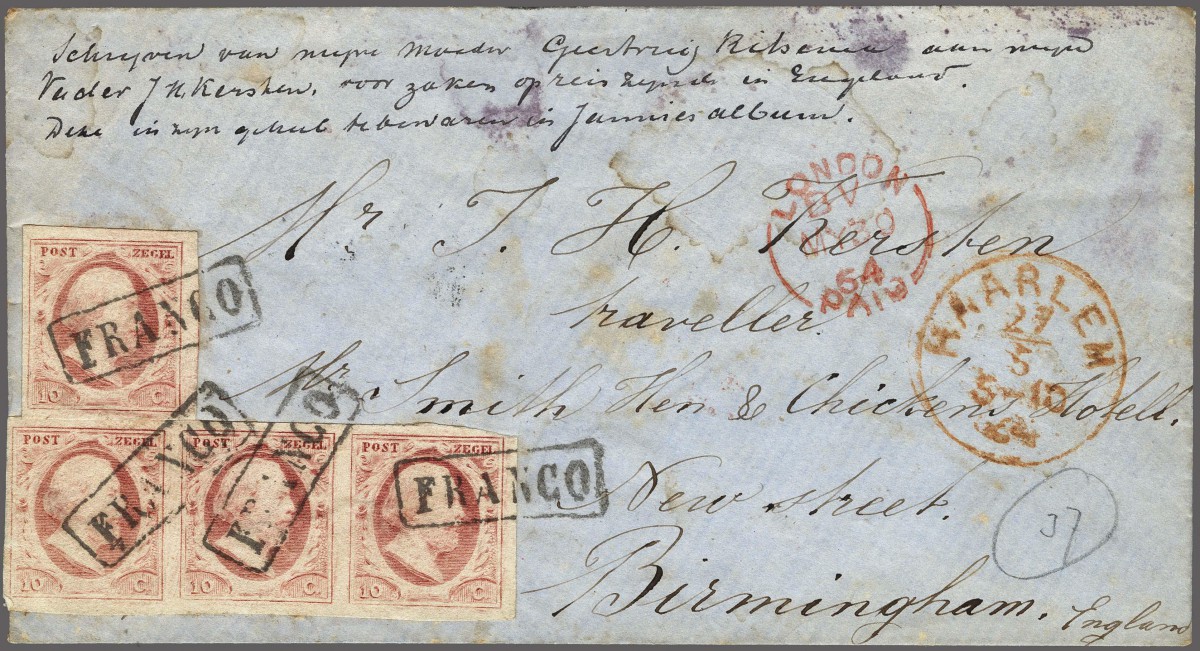 Schrijven van mijne Moeder Geertruij Ritsema aan mijne
Vader J H Kersten, voor zaken op reis zijnde in Engeland.
Deze in zijn geheel te bewaren in Jannies album.
LONDON
BV
MY 30
64
PAID
Mr J. H. Kersten
traveller
HAARLEM
27/5
5-10
64
Mr Smith Hen & Chickens Hotell.
New street.
Birmingham.
England
37
POST ZEGEL
FRANCO
10 C.
POST ZEGEL POST ZEGEL POST ZEGEL
FRANCO FRANCO FRANCO
10 C. 10 C. 10 C.